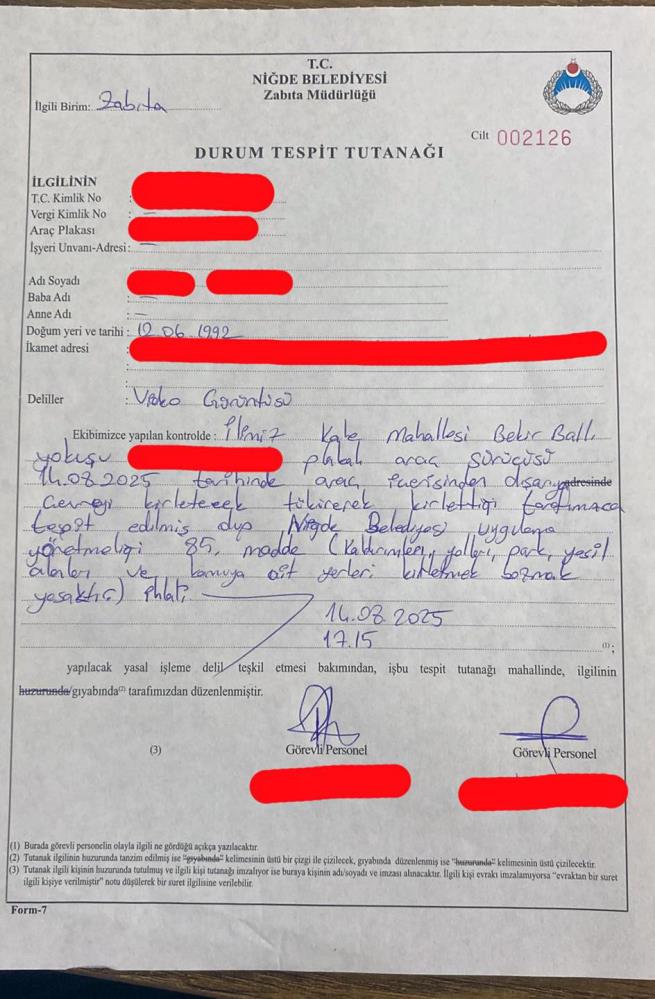 T.C.
NİĞDE BELEDİYESİ
Zabıta Müdürlüğü
İlgili Birim: Zabıta
Cilt 002126
DURUM TESPİT TUTANAĞI
İLGİLİNİN
T.C. Kimlik No :
Vergi Kimlik No : —
Araç Plakası :
İşyeri Unvanı-Adresi : —
Adı Soyadı :
Baba Adı : —
Anne Adı : —
Doğum yeri ve tarihi : 12.06.1992
İkamet adresi :
Deliller : Video Görüntüsü
Ekibimizce yapılan kontrolde : İlimiz Kale Mahallesi Bekir Ballı
yokuşu plakalı araç sürücüsü
14.08.2025 tarihinde araç içerisinden dışarı adresinde
Çevreyi kirletecek tükürerek kirlettiği tarafımızca
tespit edilmiş olup Niğde Belediyesi uygulama
yönetmeliği 85. madde (Kaldırımları, yolları, park, yeşil
alanları ve kamuya ait yerleri kirletmek bozmak
yasaktır)
14.08.2025
17.15
(1);
yapılacak yasal işleme delil teşkil etmesi bakımından, işbu tespit tutanağı mahallinde, ilgilinin
huzurunda/gıyabında(2) tarafımızdan düzenlenmiştir.
(3) Görevli Personel Görevli Personel
(1) Burada görevli personelin olayla ilgili ne gördüğü açıkça yazılacaktır.
(2) Tutanak ilgilinin huzurunda tanzim edilmiş ise "gıyabında" kelimesinin üstü bir çizgi ile çizilecek, gıyabında düzenlenmiş ise "huzurunda" kelimesinin üstü çizilecektir.
(3) Tutanak ilgili kişinin huzurunda tutulmuş ve ilgili kişi tutanağı imzalıyor ise buraya kişinin adı/soyadı ve imzası alınacaktır. İlgili kişi evrakı imzalamıyorsa "evraktan bir suret
ilgili kişiye verilmiştir" notu düşülerek bir suret ilgilisine verilebilir.
Form-7